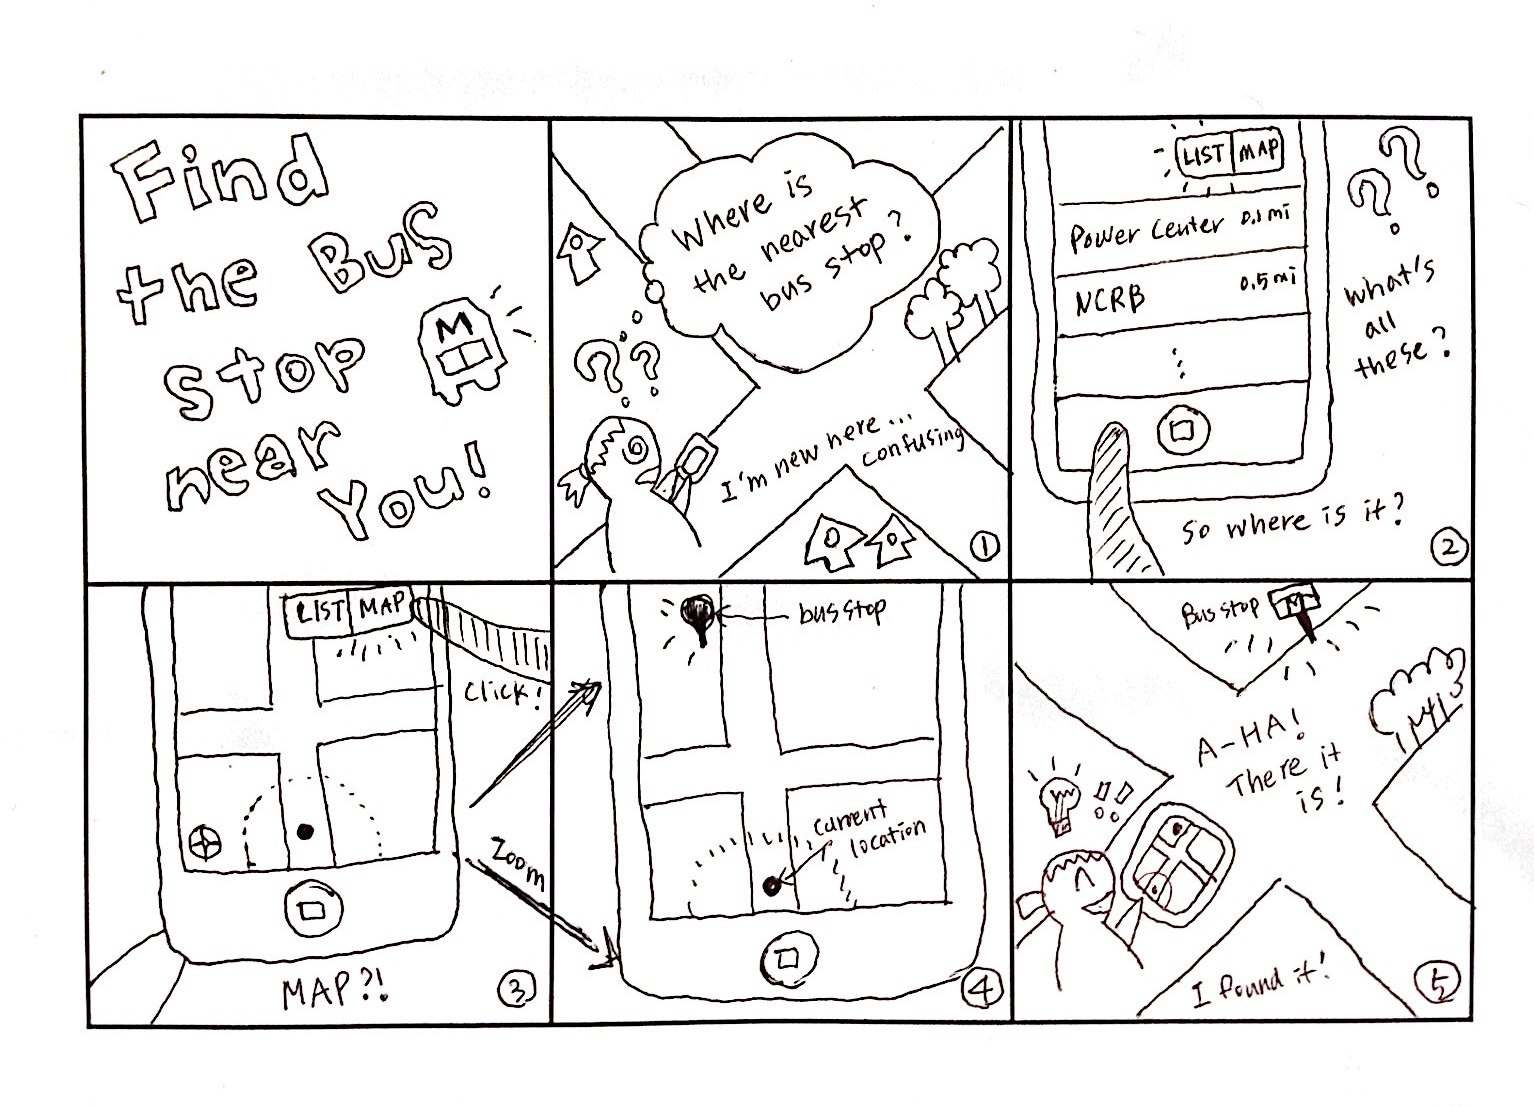 Find
the Bus
stop
near
You!
M
Where is
the nearest
bus stop?
??
I'm new here...
confusing
①
LIST MAP
Power Center 0.1 mi
NCRB 0.5 mi
⋮
??
What's
all
these?
So where is it?
②
LIST MAP
click!
Zoom
MAP?!
③
bus stop
current
location
④
Bus stop
M
A-HA!
There it
is!
!!
I found it!
⑤